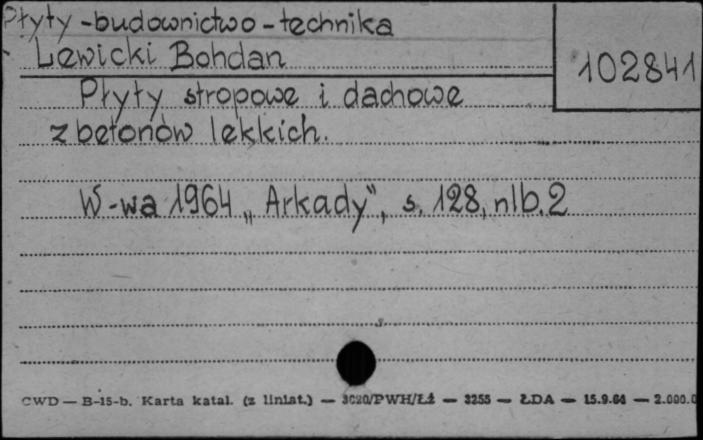 Płyty - budownictwo - technika
Lewicki Bohdan
102841
Płyty stropowe i dachowe
z betonów lekkich.
W-wa 1964 „Arkady", s. 128, nlb. 2
CWD — B-15-b. Karta katal. (z liniat.) — 3020/PWH/Łż — 3255 — ŁDA — 15.9.64 — 2.000.0